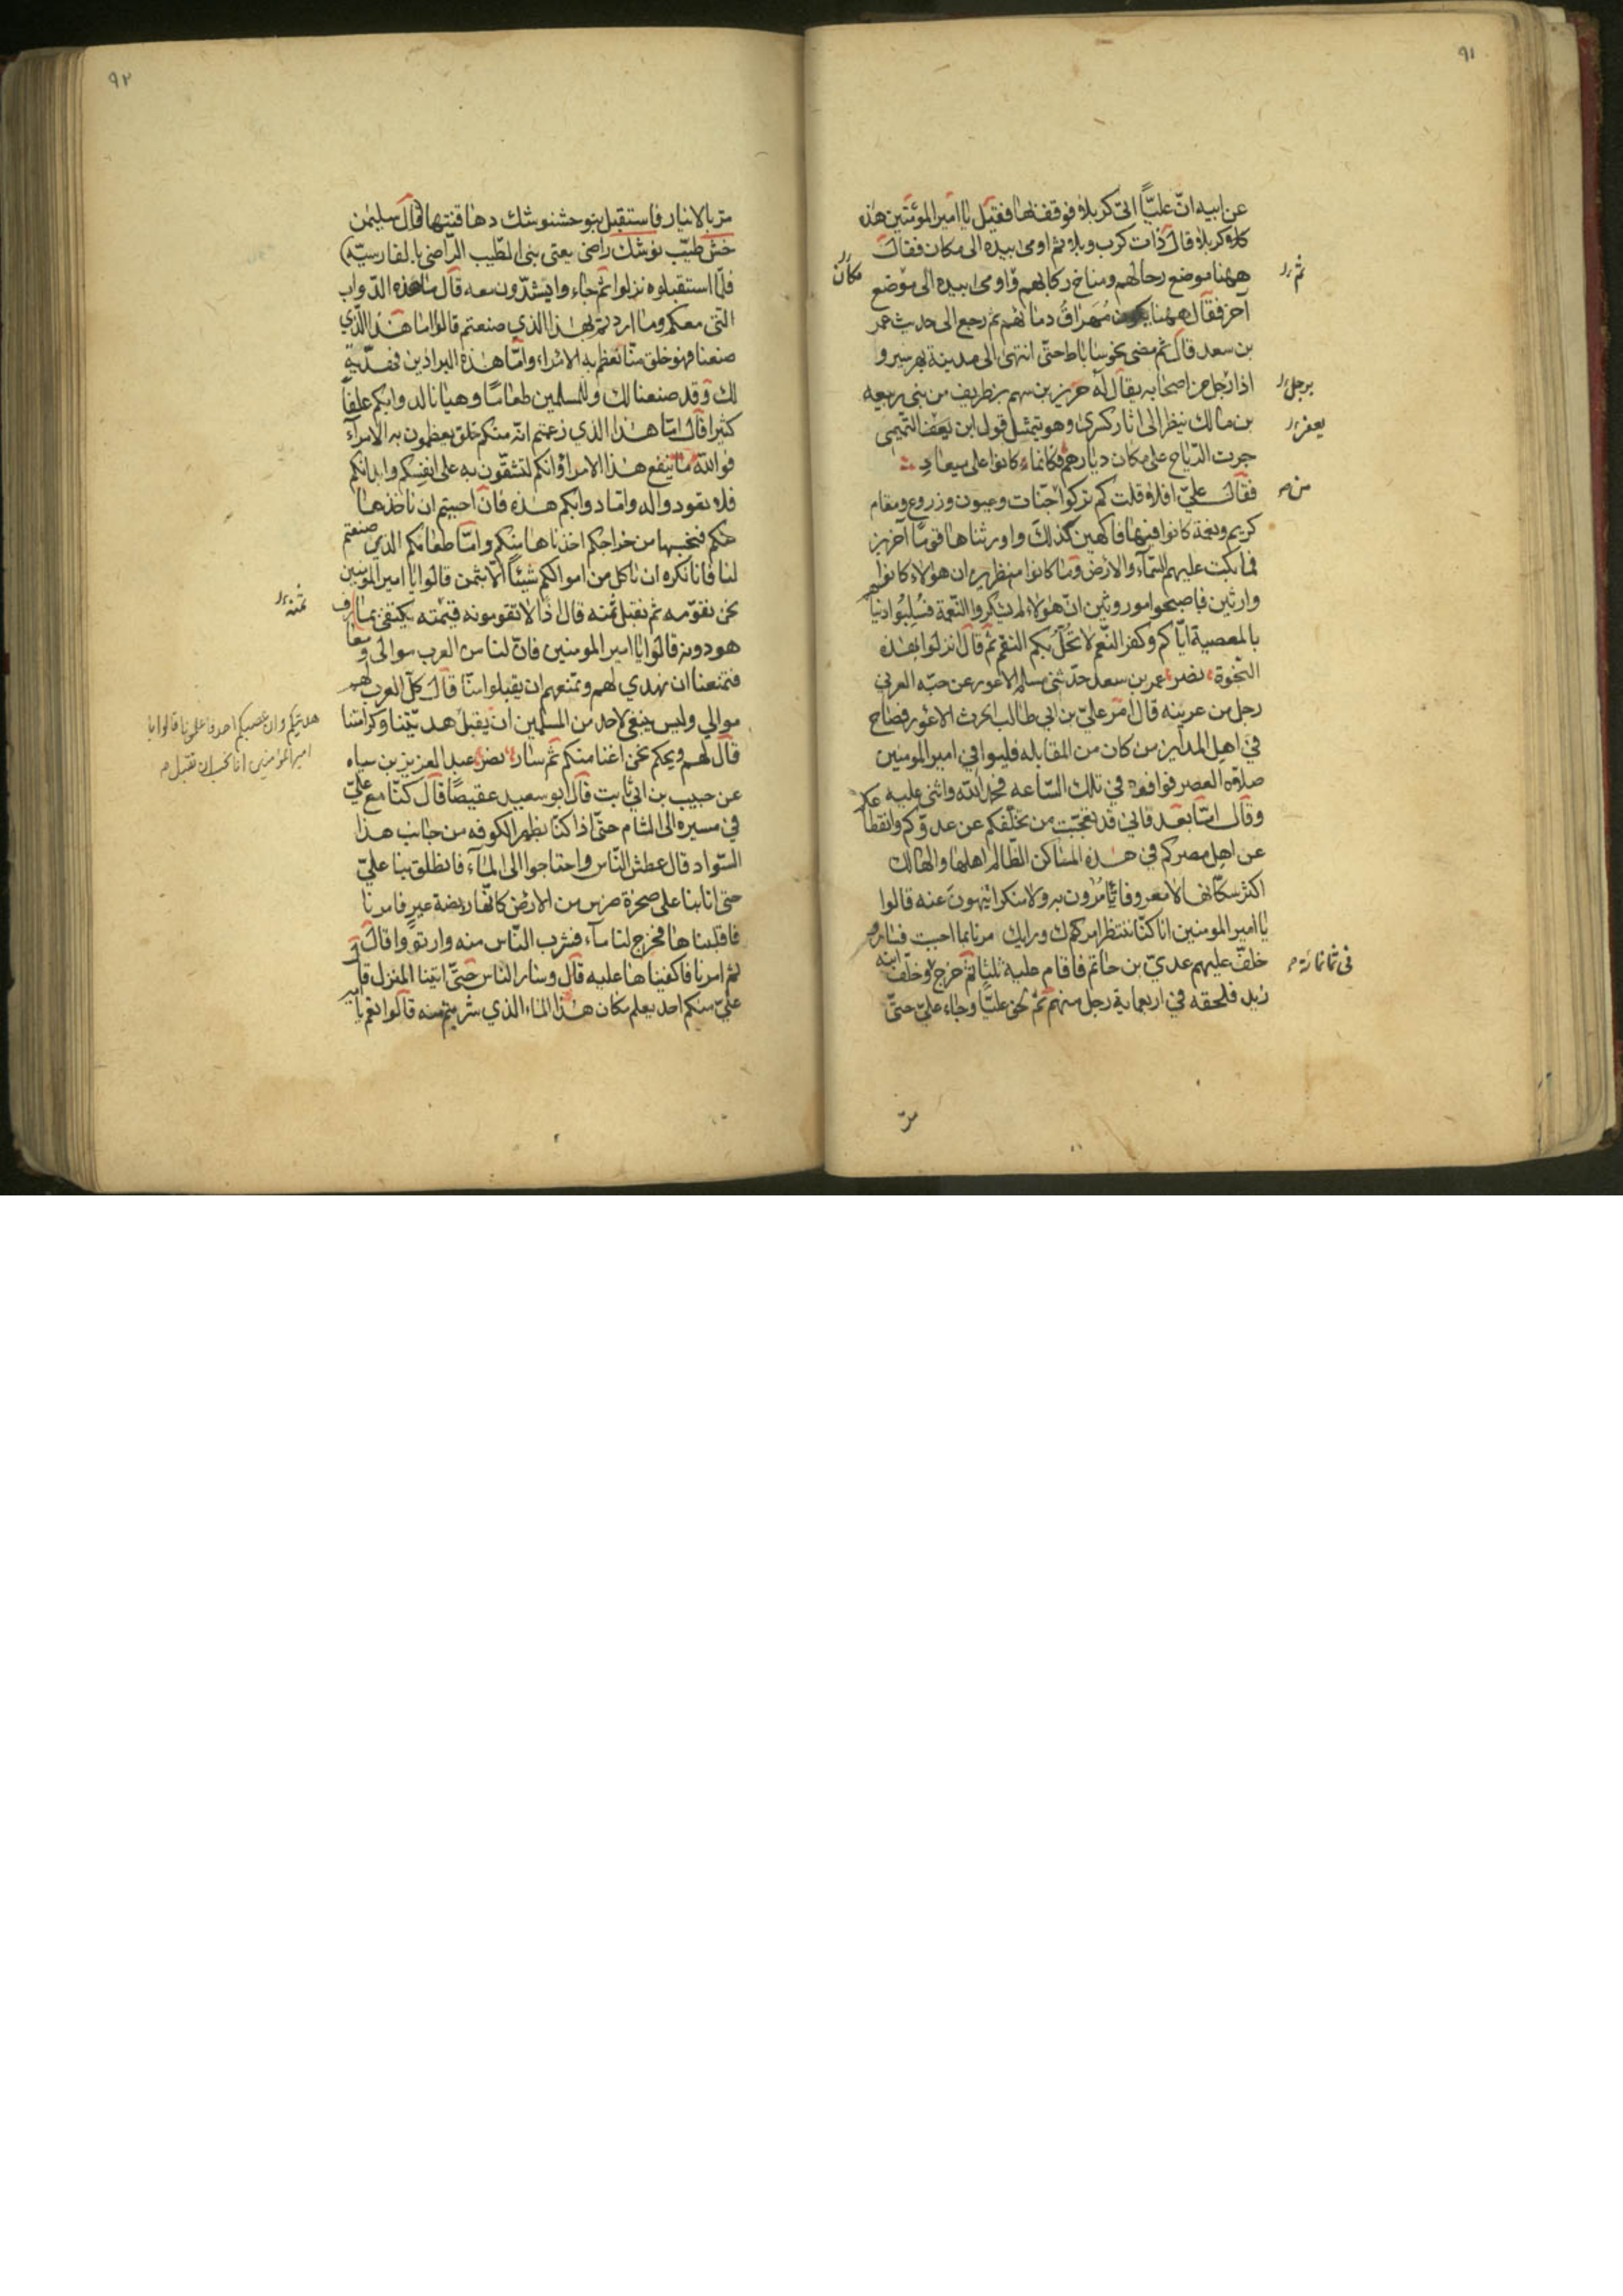 ٩١
عن ابيه انّ عليّاً اتى كربلاء فوقف بها فقيل يا امير المؤمنين هذه
كربلاء قال ذات كرب وبلاء ثم اومى بيده الى مكان فقال
ههنا موضع رحالهم ومناخ ركابهم واومى بيده الى موضع
آخر فقال ههنا مُهراقُ دمائهم ثم رجع الى حديث عمر
بن سعد قال ثم مضى نحو ساباط حتّى انتهى الى مدينة بهرسير و
اذا رجل من اصحابه يقال له حريز بن سهم بن طريف من بنى ربيعه
بن مالك ينظر الى اثار كسرى وهو يتمثل قول ابن يعفر التميمى
جرت الرّياح على مكان ديارهم فكانما كانوا على ميعاد
فقال علىّ افلا قلت كم تركوا من جنّات وعيون وزروع ومقام
كريم ونعمة كانوا فيها فاكهين كذلك واورثناها قوماً آخرين
فما بكت عليهم السّمآء والارض وما كانوا منظرين ان هولاء كانوا
وارثين فاصبحوا موروثين انّ هولاء لم يشكروا النّعمة فسُلِبُوا دنياهم
بالمعصية ايّاكم وكفر النّعم لا تحُلّ بكم النقم ثم قال انزلوا بهذه
النّجوة نصر عمر بن سعد حدّثنى مسلم الاعور عن حبّه العرنى
رجل من عرينه قال امر علىّ بن ابى طالب الحرث الاعور فصاح
في اهل المداين من كان من المقاتله فليوافي امير المومنين
صلاة العصر فوافوه في تلك السّاعه فحمد الله واثنى عليه
وقال امّا بعد فانى قد تعجّبت من تخلّفكم عن عدوّكم وانقطاعكم
عن اهل مصركم في هذه المساكن الظّالم اهلها والهالك
اكثر سكّانها لا معروفا يأمُرون به ولا منكرا ينهون عنه قالوا
يا امير المومنين انا كنّا ننتظر امرك ورايك مرنا بما احببت فسار و
خلّف عليهم عدىّ بن حاتم فاقام عليهم ثلثا ثم خرج وخلّف ابنه
زيد فلحقه في اربعماية رجل منهم ثم لحق عليّاً وجاء علىّ حتّى
ثم
مكان
برجل
يعفر
من
فى ثمانمائة
مرّ
٩٢
مرّ بالانبار فاستقبل بنو خشنوشك دهاقنتها قال سليمن
خش طيّب نوشك راض يعنى بنى الطّيب الرّاضى بالفارسيّه
فلمّا استقبلوه نزلوا ثم جاءوا يشتدّون معه قال ما هذه الدّواب
التى معكم وما اردتم بهذا الذي صنعتم قالوا اما هذا الذّي
صنعنا فهو خلق منّا نعظّم به الامراء وامّا هذه البراذين فهديّة
لك وقد صنعنا لك وللمسلمين طعاماً وهيانا لدوابكم علفاً
كثيرا قال امّا هذا الذي زعمتم انّه منكم خلق يعظمون به الامرآء
فوالله ما ينفع هذا الامراء وانكم لتشقّون به على انفسكم وابدانكم
فلا تعودوا له وامّا دوابكم هذه فان احببتم ان ناخذها
منكم فنحسبها من خراجكم اخذناها منكم وامّا طعامكم الذي صنعتم
لنا فانا نكره ان ناكل من اموالكم شيئاً الّا بثمن قالوا يا امير المومنين
نحن نقوّمه ثم نقبل ثمنه قال اذاً لا تقومونه قيمته نكتفى بما
هو دونه قالوا يا امير المومنين فانّ لنا من العرب موالى و
فتمنعنا ان نهدي لهم وتمنعهم ان يقبلوا منّا قال كلّ العرب لكم
موالي وليس ينبغى لاحد من المسلمين ان يقبل هديّتنا وكرامتنا
قال لهم ويحكم نحن اغنا منكم ثم سار نصر عبد العزيز بن سياه
عن حبيب بن ابى ثابت قال ابو سعيد عقيصا قال كنّا مع علىّ
في مسيره الى الشام حتّى اذا كنّا بظهر الكوفه من جانب هذا
السّواد قال عطش النّاس واحتاجوا الى المآء فانطلق بنا علىّ
حتى اتانا على صخرة ضرس من الارض كانّها ربضة عير فامرنا
فاقلبناها فخرج لنا مآء فشرب النّاس منه وارتووا قال
ثم امرنا فاكفيناها عليه قال وسار الناس حتّى اتينا المنزل قال
علىّ منكم احد يعلم مكان هذا الماء الذي شربتم منه قالوا نعم يا امير
ثمنه
هديتكم وان غصبكم احد فاعلمونا قالوا يا
امير المؤمنين انا نحب ان تقبل